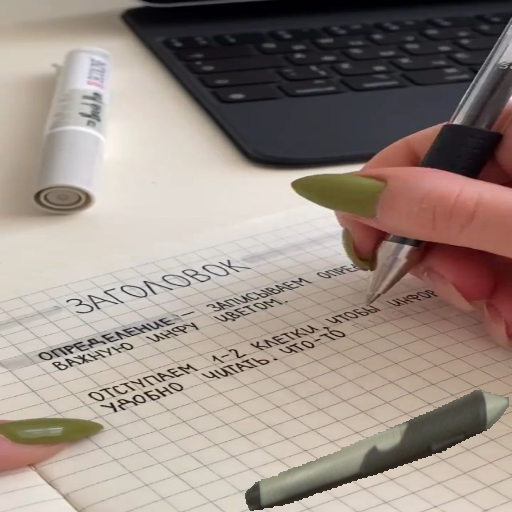 ЗАГОЛОВОК
ОПРЕДЕЛЕНИЕ — ЗАПИСЫВАЕМ
ВАЖНУЮ ИНФУ ЦВЕТОМ.
ОТСТУПАЕМ 1-2 КЛЕТКИ, ЧТОБЫ ИНФОР
УДОБНО ЧИТАТЬ. ЧТО-ТО